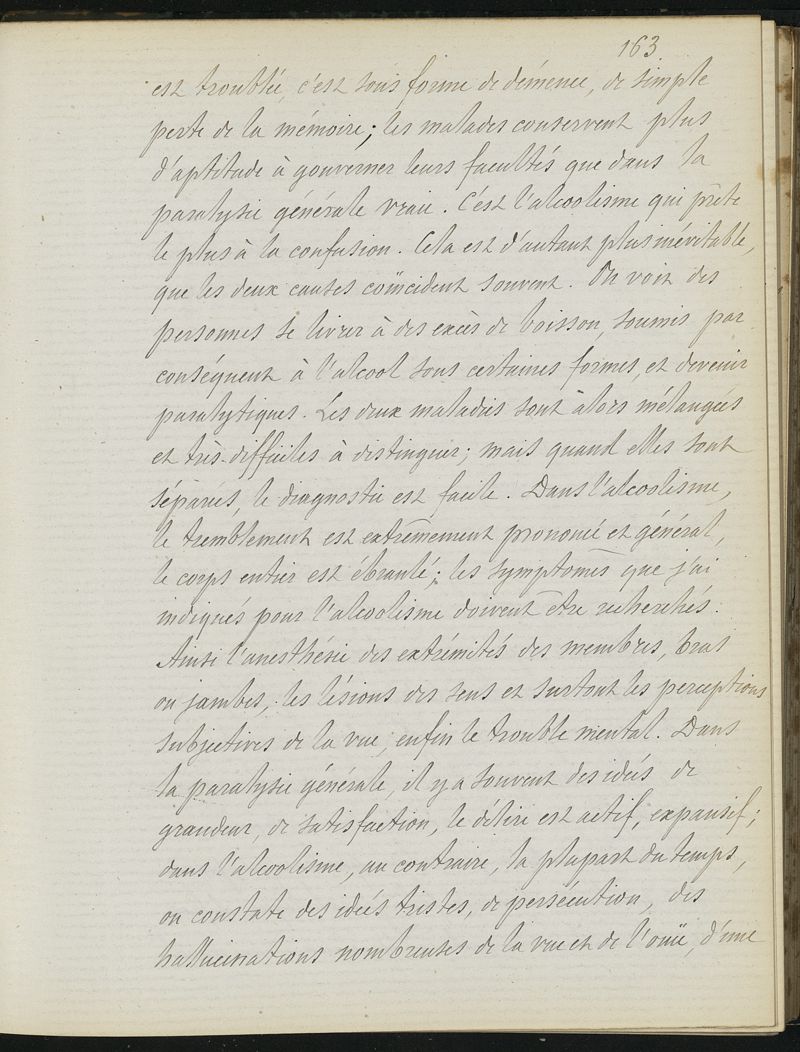 163
est troublée, c'est sous forme de démence, de simple
perte de la mémoire; les malades conservent plus
d'aptitude à gouverner leurs facultés que dans la
paralysie générale vraie. C'est l'alcoolisme qui prête
le plus à la confusion. Cela est d'autant plus inévitable,
que les deux causes coïncident souvent. On voit des
personnes se livrer à des excès de boisson, soumis par
conséquent à l'alcool sous certaines formes, et devenir
paralytiques. Les deux maladies sont alors mélangées
et très-difficiles à distinguer; mais quand elles sont
séparées, le diagnostic est facile. Dans l'alcoolisme,
le tremblement est extrêmement prononcé et général,
le corps entier est ébranlé; les symptomes que j'ai
indiqués pour l'alcoolisme doivent être recherchés.
Ainsi l'anesthésie des extrémités des membres, bras
ou jambes, les lésions des sens et surtout les perceptions
subjectives de la vue, enfin le trouble mental. Dans
la paralysie générale, il y a souvent des idées de
grandeur, de satisfaction, le délire est actif, expansif;
dans l'alcoolisme, au contraire, la plupart du temps,
on constate des idées tristes, de persécution, des
hallucinations nombreuses de la vue et de l'ouïe, d'une